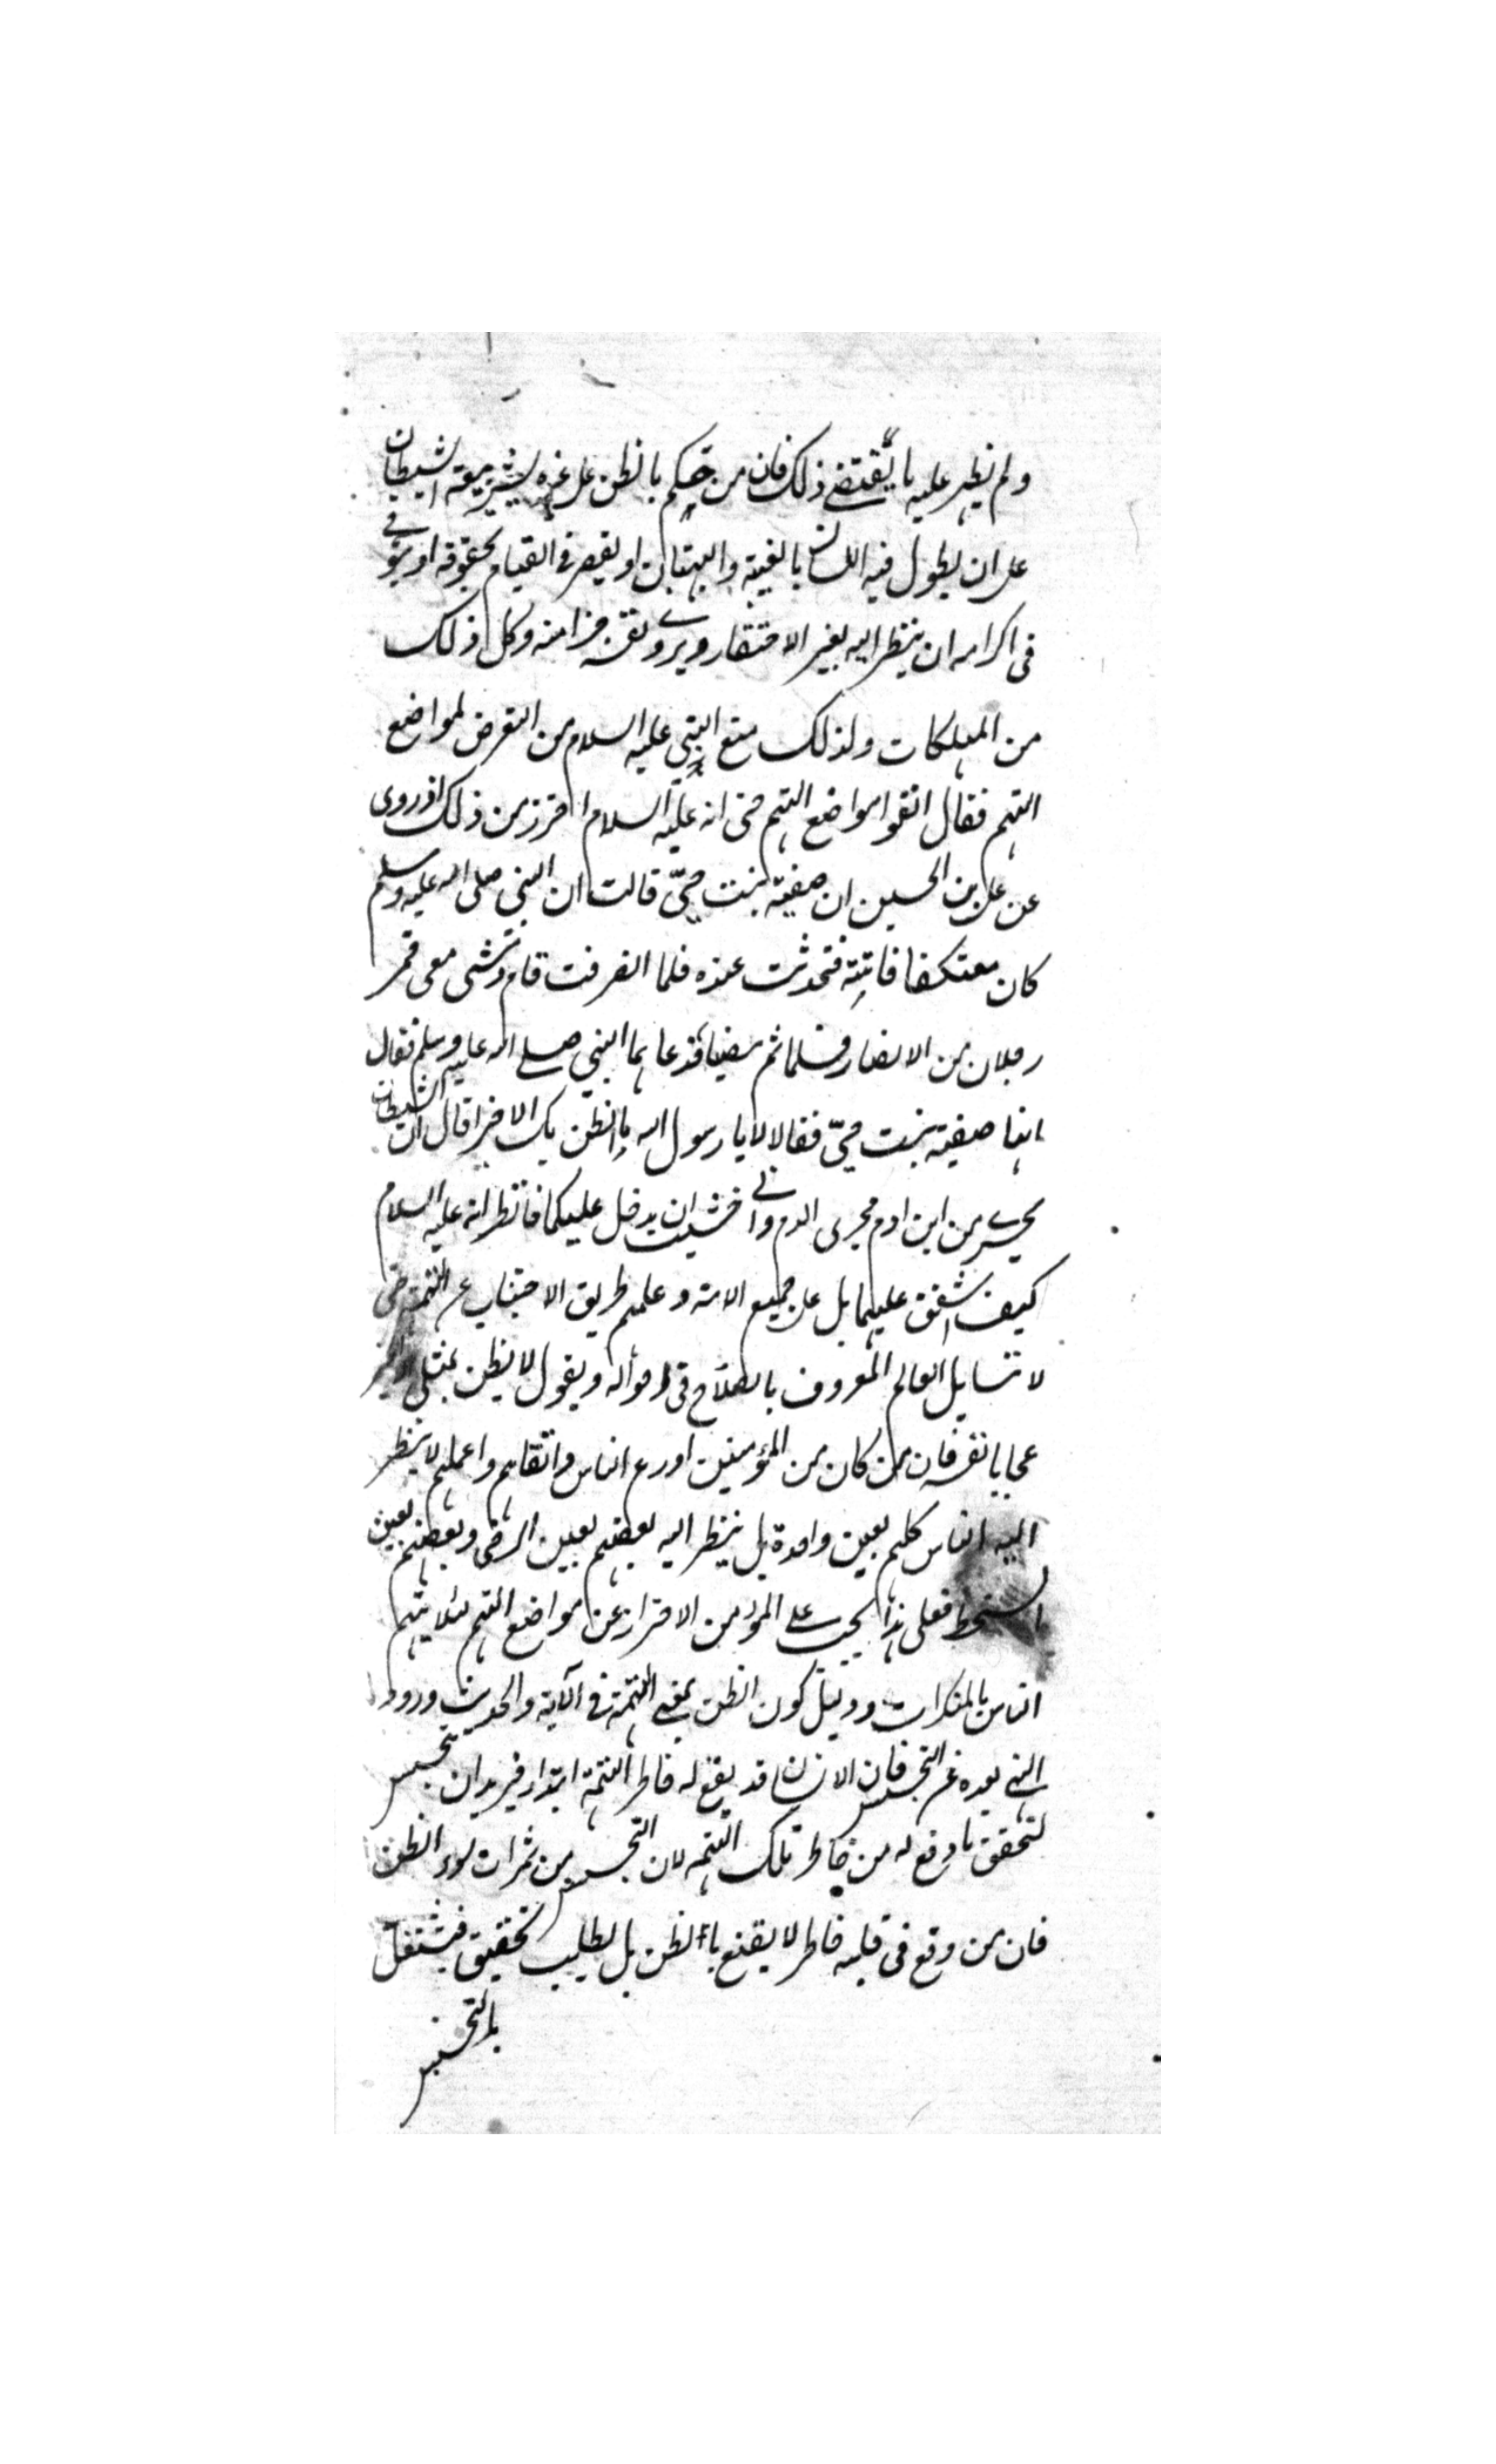 ولم يظهر عليه ما يقتضى ذلك فان من حكم بالظن على غيره بشر يبعثه الشيطان
على ان يطول فيه اللسان بالغيبة والبهتان او يقصر فى القيام بحقوقه او يتوانى
فى اكرامه ان ينظر اليه بغير الاحتقار ويرى نفسه خيرا منه وكل ذلك
من المهلكات ولذلك منع النبي عليه السلام من التعرض لمواضع
التهم فقال اتقوا مواضع التهم حتى انه عليه السلام احترز من ذلك اذ روى
عن على بن الحسين ان صفية بنت حيّ قالت ان النبي صلى الله عليه وسلم
كان معتكفا فاتيته فتحدثت عنده فلما انصرفت قام وتمشى معى فمر
رجلان من الانصار فسلما ثم مضيا فدعاهما النبي صلى الله عليه وسلم فقال
انها صفية بنت حيّ فقالا لا يا رسول الله ما نظن بك الا خيرا قال ان الشيطان
يجرى من ابن ادم مجرى الدم وانى خشيت ان يدخل عليكما فانظر انه عليه السلام
كيف اشفق عليهما بل على جميع الامة وعلمهم طريق الاجتناب عن التهمة حتى
لا يتساهل العالم المعروف بالصلاح فى احواله ويقول لا يظن بمثلى الا الخير
عجابا بنفسه فان من كان من المؤمنين اورع الناس واتقاهم واعملهم لا ينظر
اليه الناس كلهم بعين واحدة بل ينظر اليه بعضهم بعين الرضى وبعضهم بعين
السخط فعلى هذا يجب على المؤمن الاحتراز عن مواضع التهم لئلا يتهم
الناس بالمنكرات ودليل كون الظن بمعنى التهمة فى الآية والحديث ورود
النهى بعده عن التجسس فان الانسان قد يقع له خاطر التهمة ابتداء فيريد ان يتجسس
لتحقق ما وقع له من خاطر تلك التهمة لان التجسس من ثمرات سوء الظن
فان من وقع فى قلبه خاطر لا يقنع بالظن بل يطلب تحقيق فيشتغل
بالتجسس